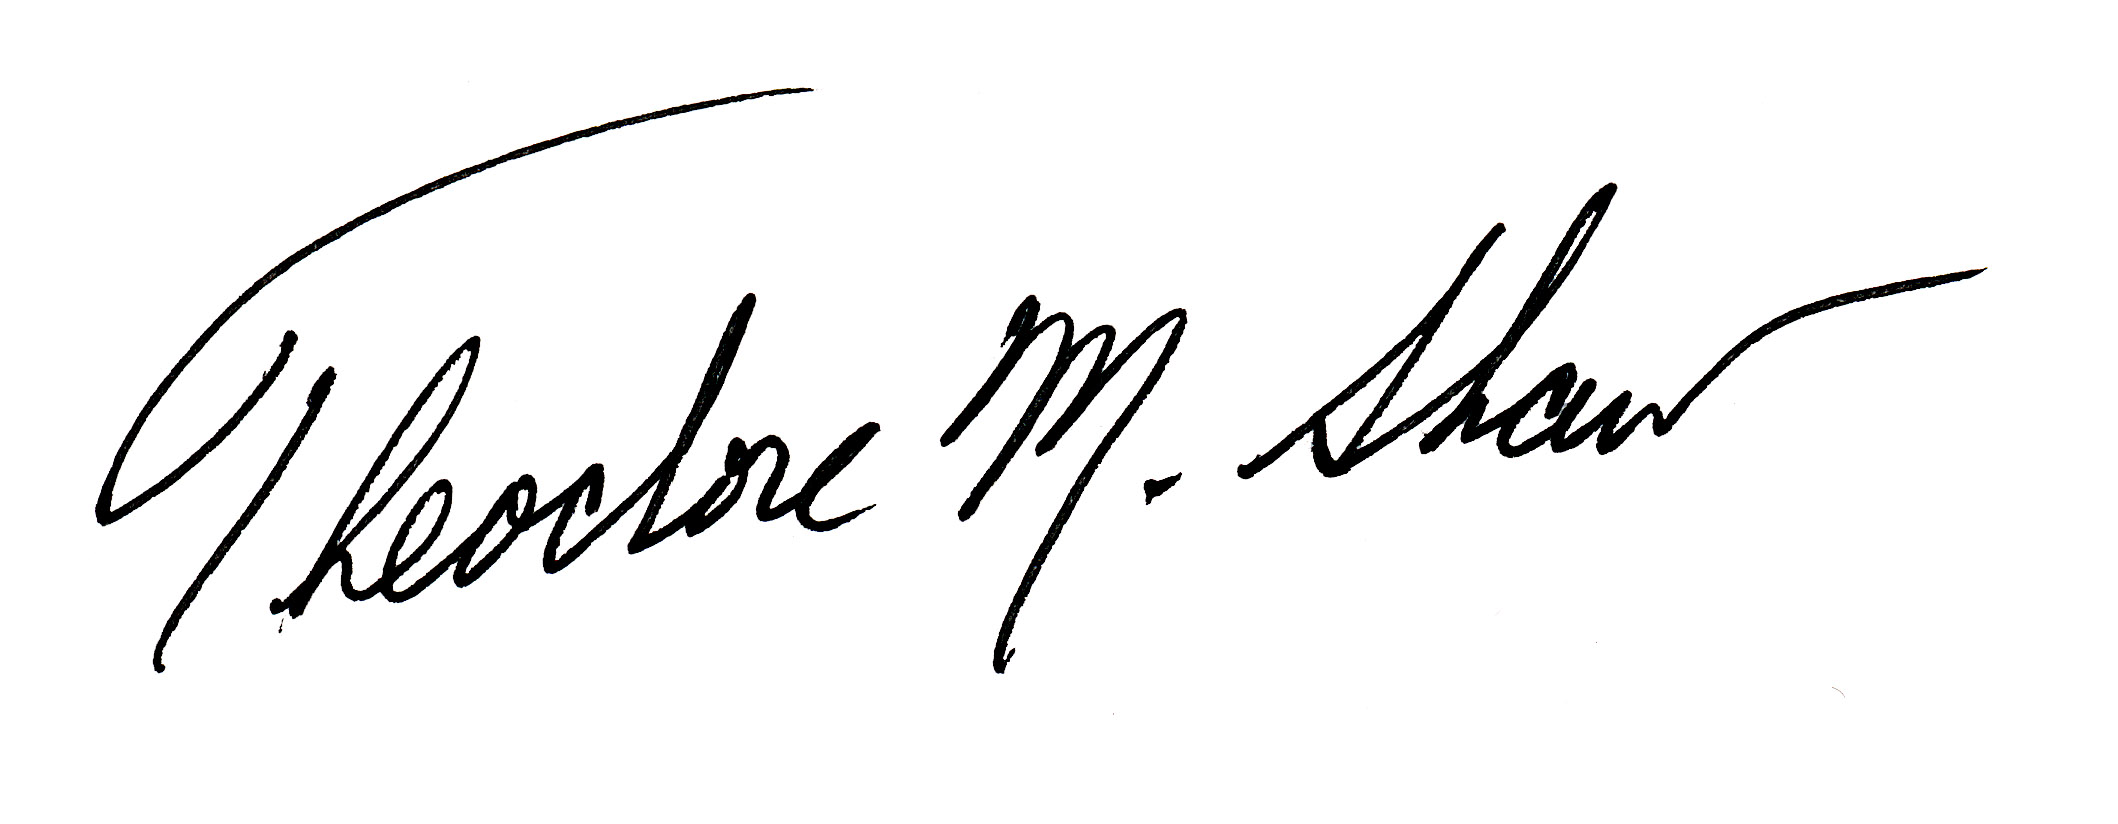 Theodore M. Shaw